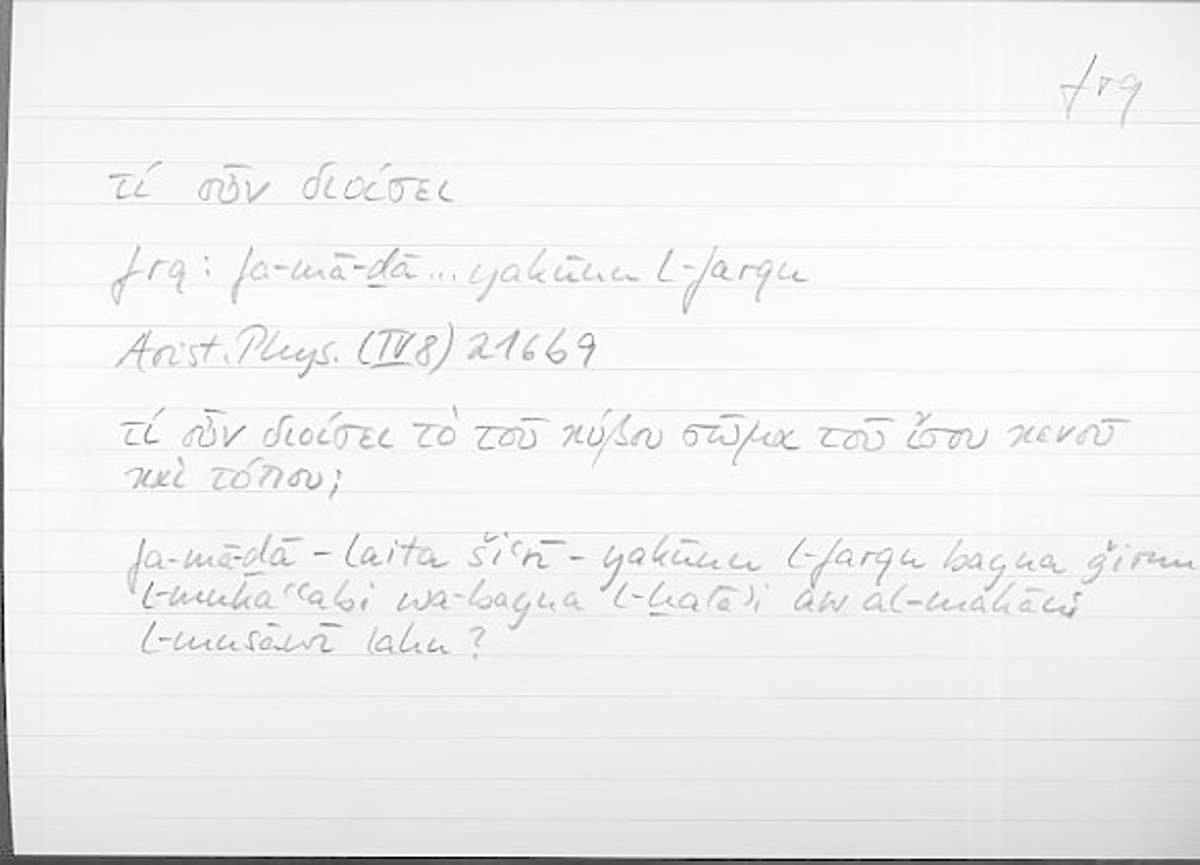 frq
τί οὖν διοίσει
frq: fa-mā-ḏā ... yakūnu l-farqu
Arist. Phys. (IV 8) 216b9
τί οὖν διοίσει τὸ τοῦ κύβου σῶμα τοῦ ἴσου κενοῦ
καὶ τόπου;
fa-mā-ḏā – laita šiʿrī – yakūnu l-farqu bayna ǧirmi
l-mukaʿʿabi wa-bayna l-ḫalāʾi aw al-makāni
l-musāwī lahu?